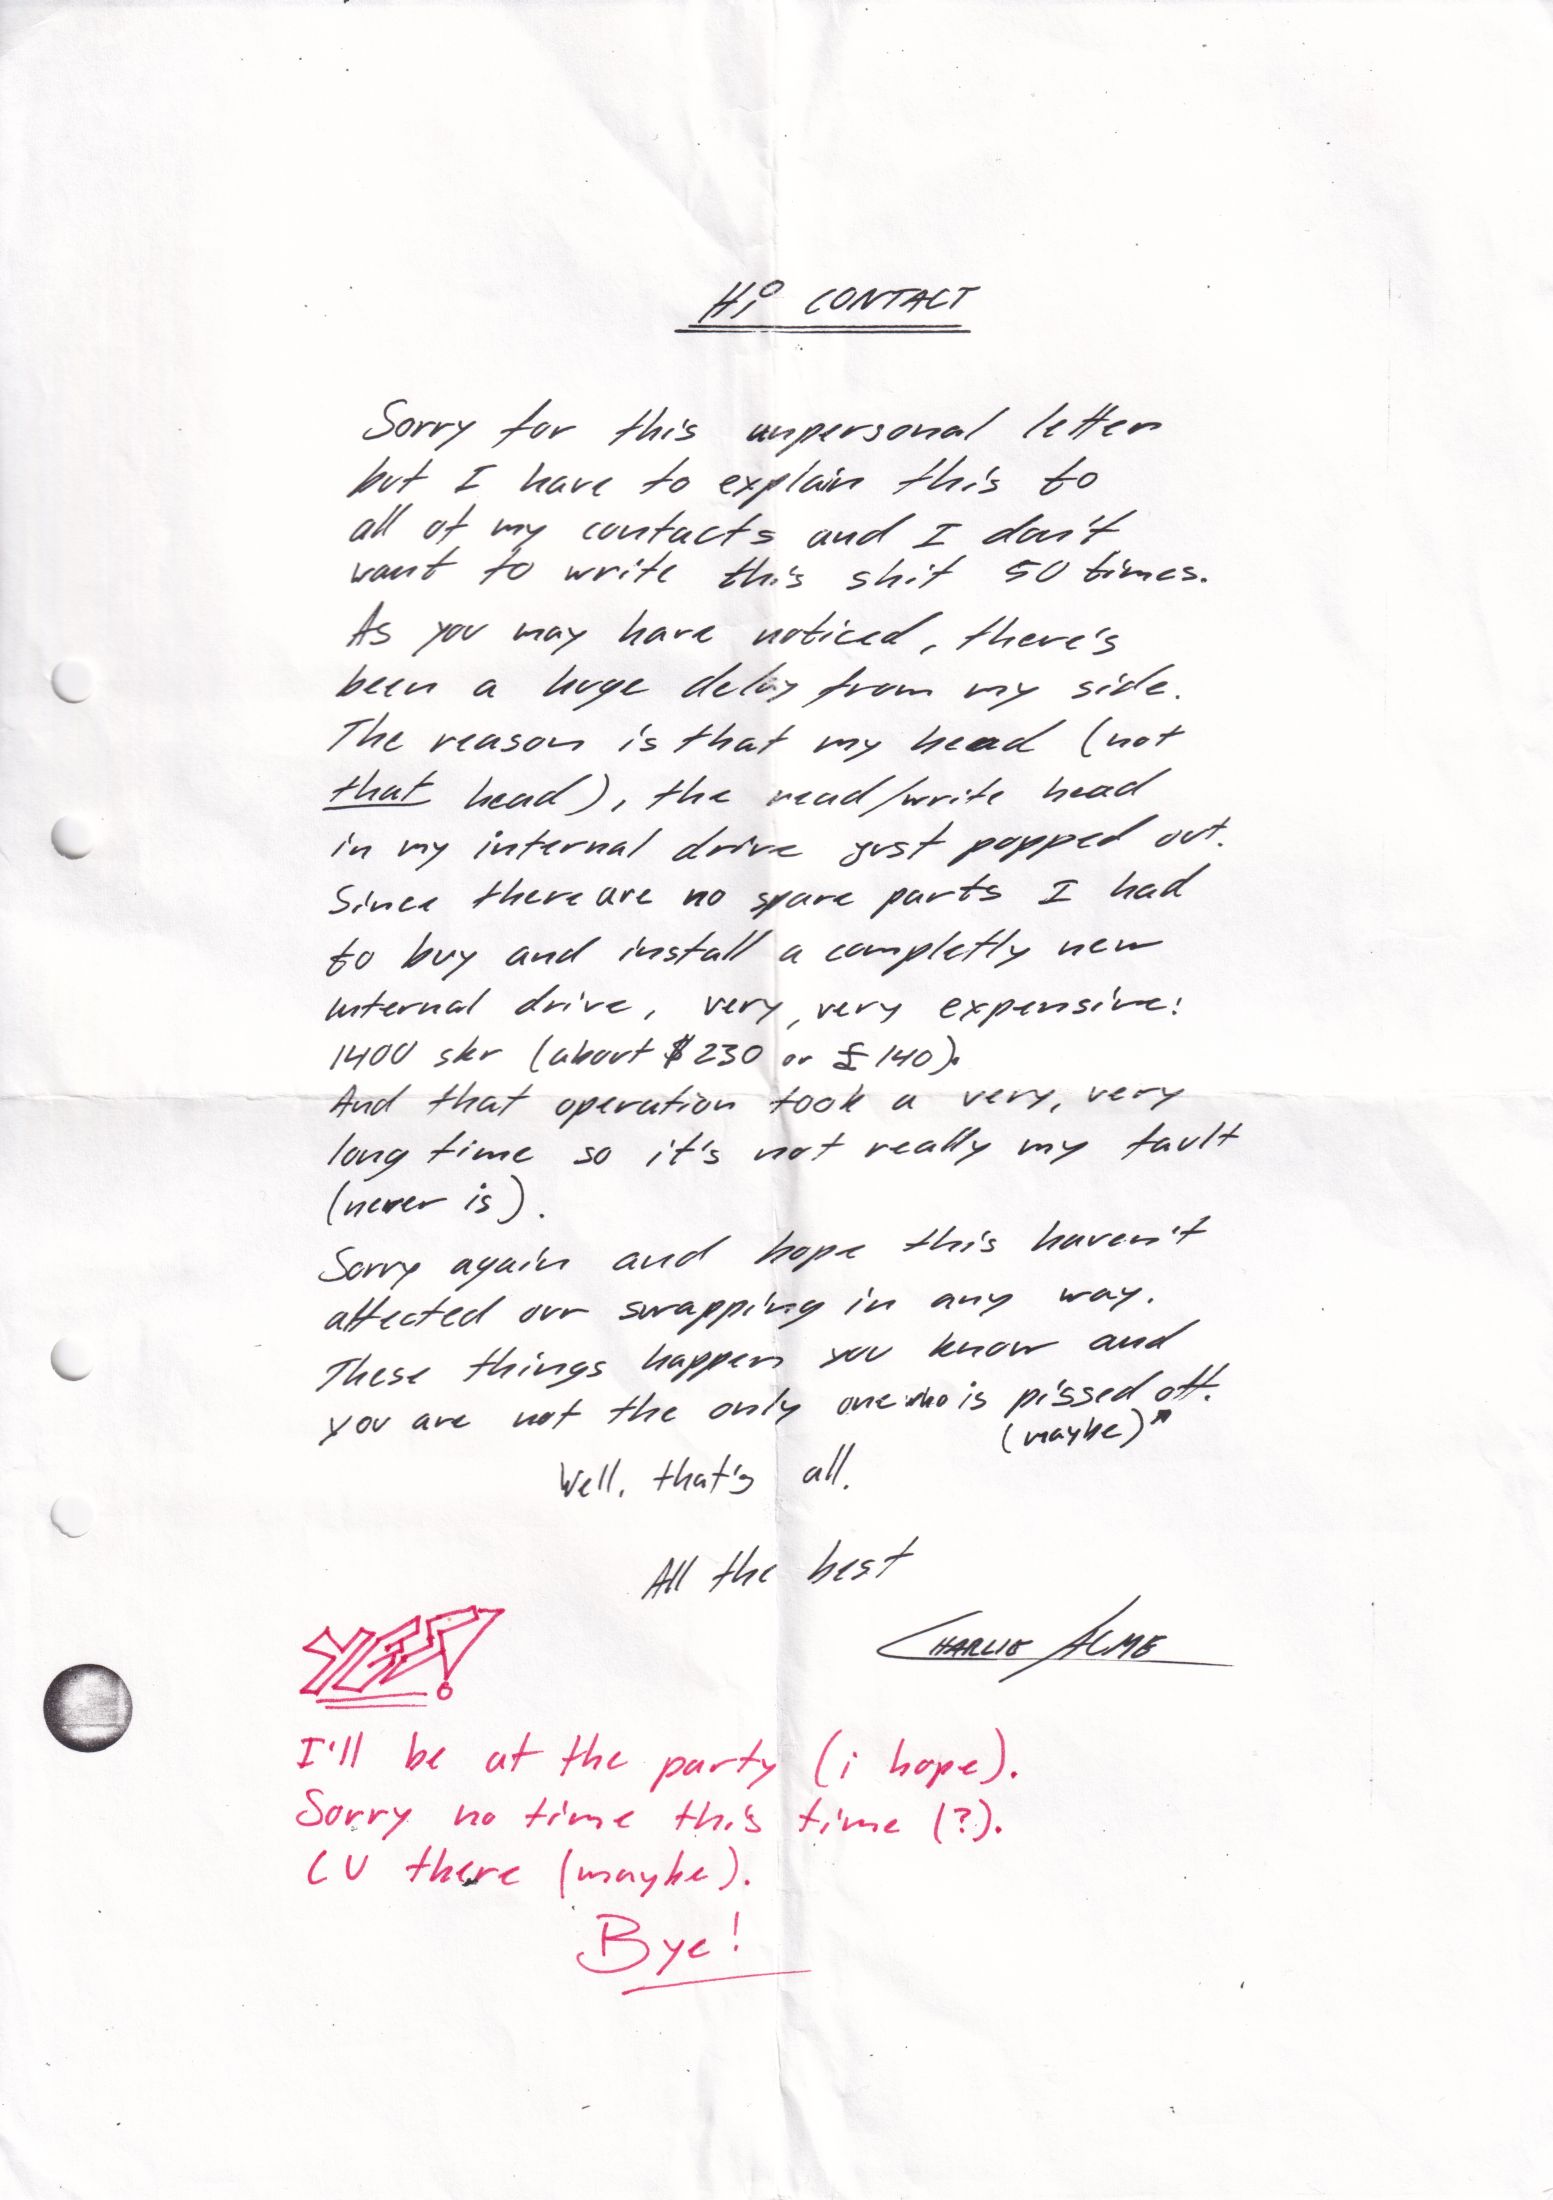 Hi CONTACT
Sorry for this unpersonal letter
but I have to explain this to
all of my contacts and I don't
want to write this shit 50 times.
As you may have noticed, there's
been a huge delay from my side.
The reason is that my head (not
that head), the read/write head
in my internal drive just popped out.
Since there are no spare parts I had
to buy and install a completly new
internal drive, very, very expensive:
1400 skr (about $230 or £140).
And that operation took a very, very
long time so it's not really my fault
(never is).
Sorry again and hope this haven't
affected our swapping in any way.
These things happen you know and
you are not the only one who is pissed off.
(maybe)
Well, that's all.
All the best
CHARLIE ACME
YES!
I'll be at the party (i hope).
Sorry no time this time (?).
CU there (maybe).
Bye!